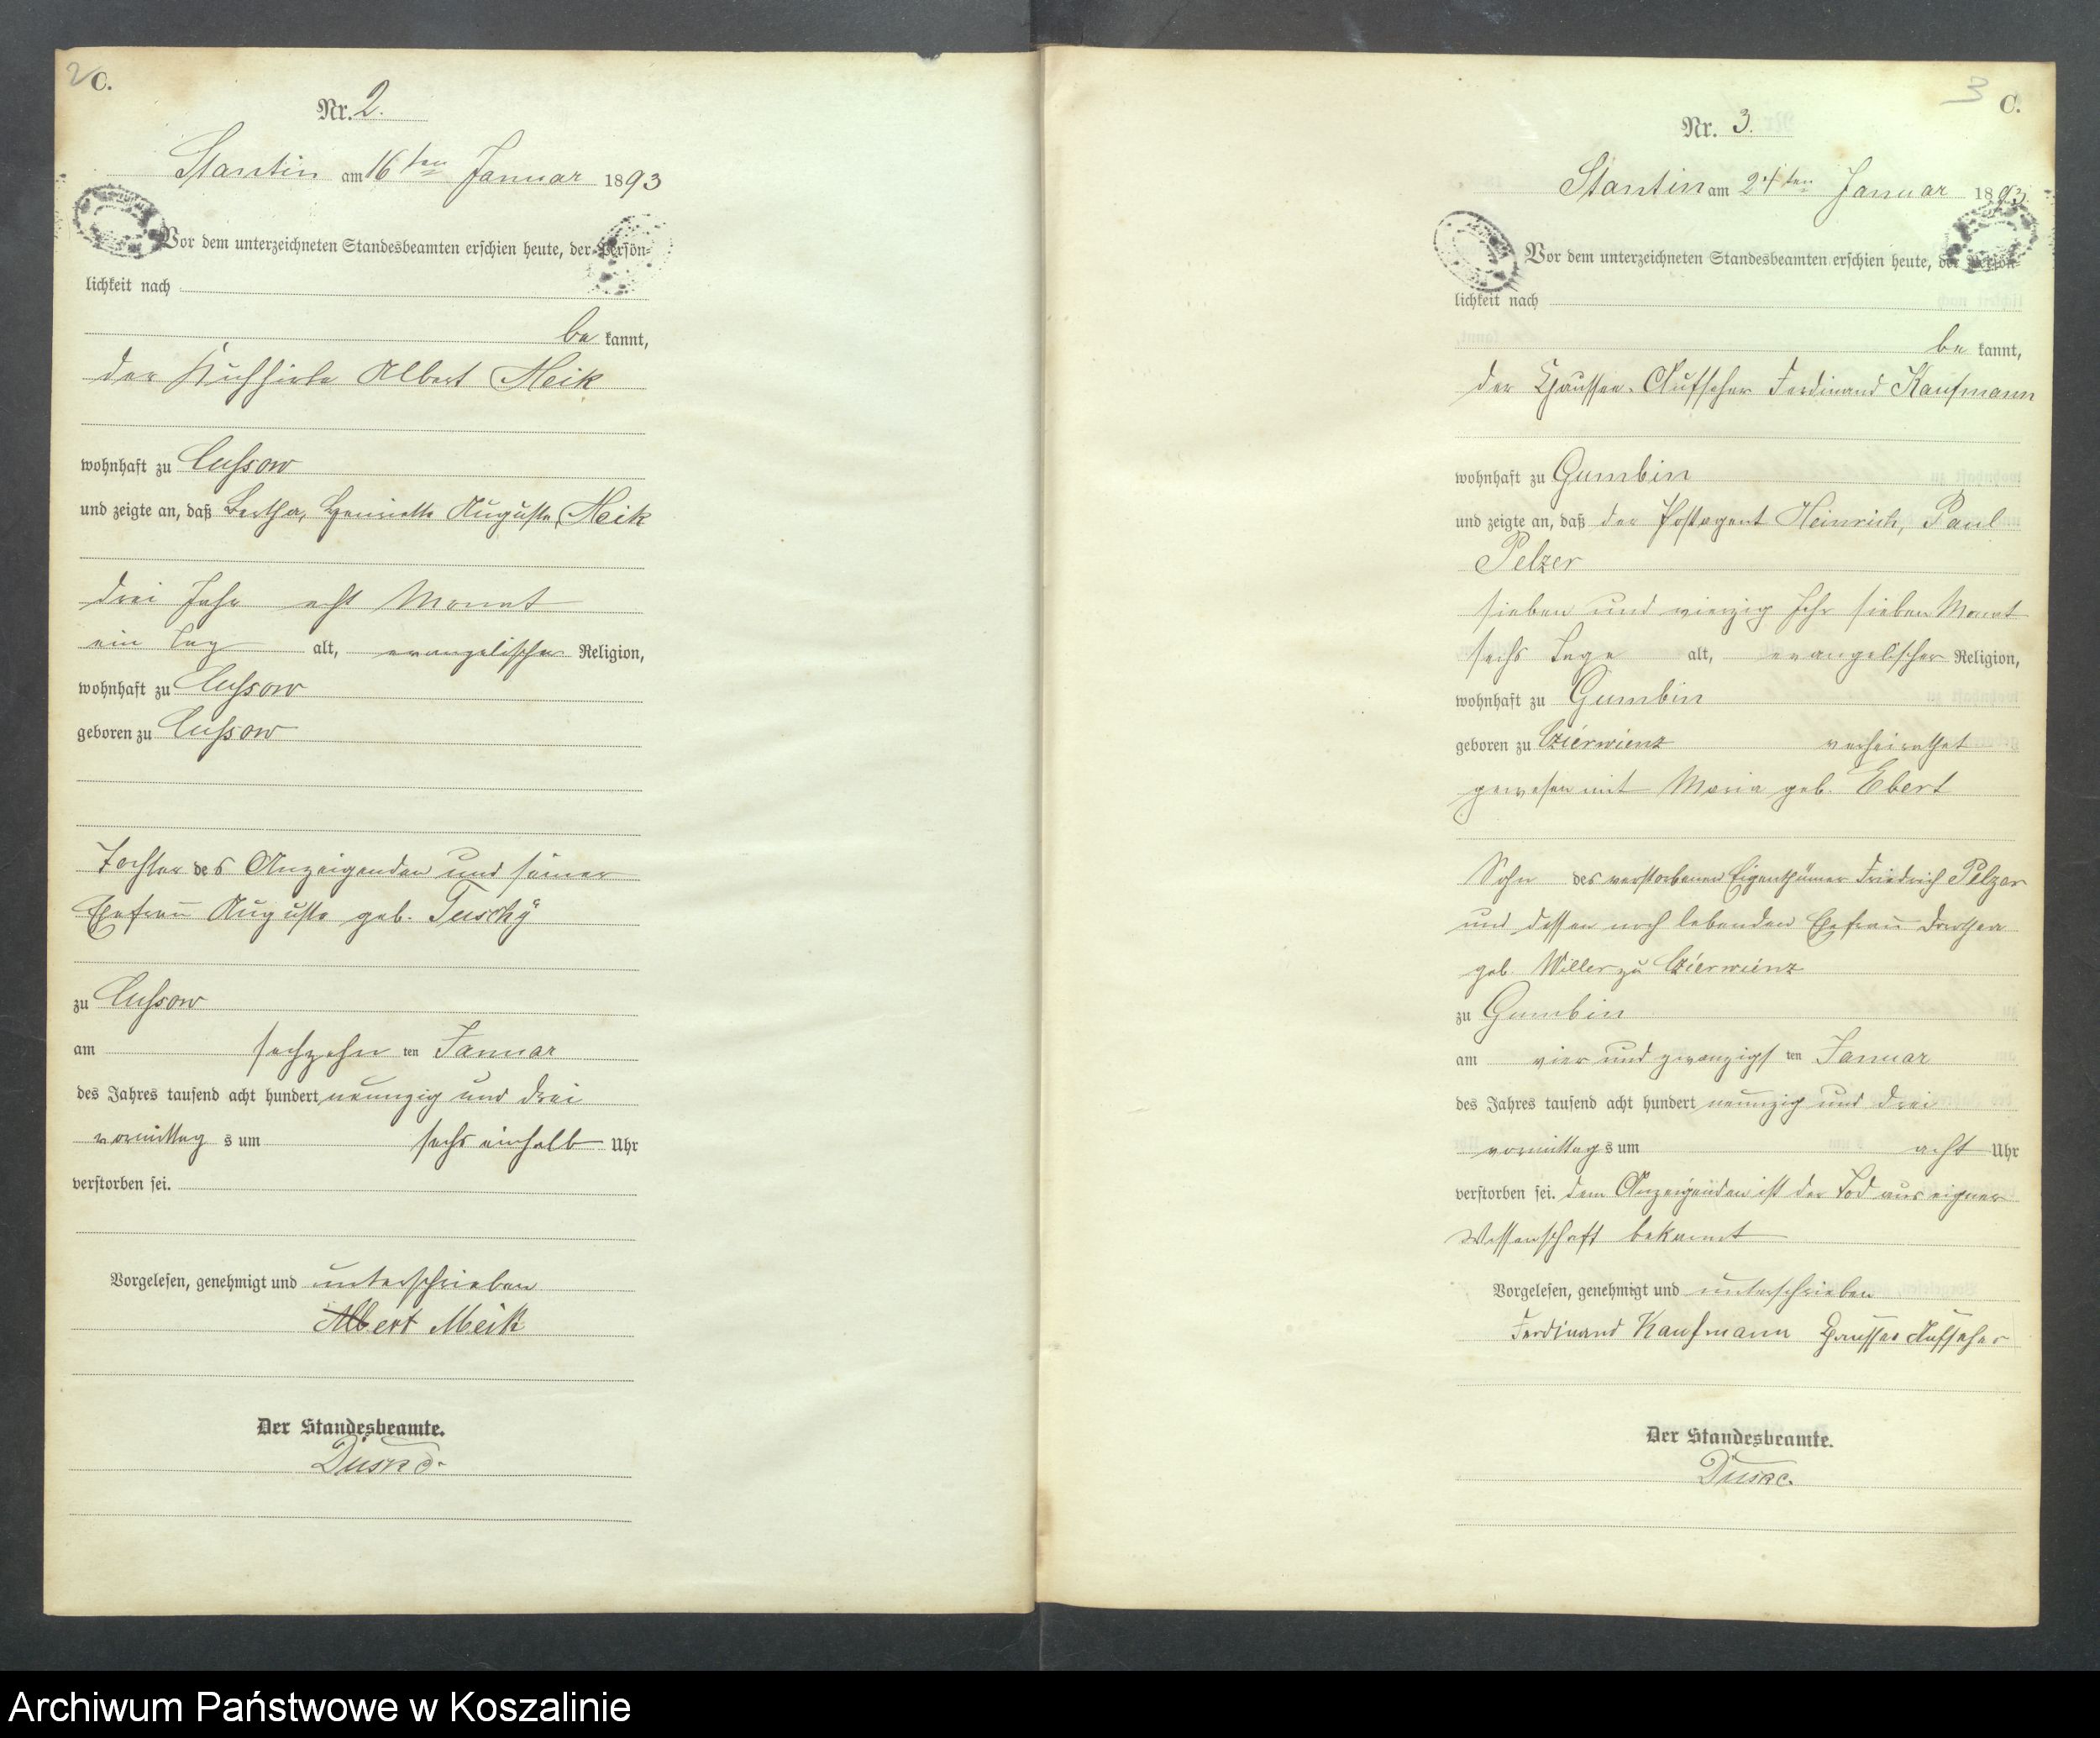 2
C.
Nr. 2.
Stantin am 16ten Januar 1893
Vor dem unterzeichneten Standesbeamten erschien heute, der Persön-
lichkeit nach
be kannt,
der Kuhhirte Albert Meik
wohnhaft zu Cussow
und zeigte an, daß Bertha, Henriette Auguste Meik
drei Jahr acht Monat
ein Tag alt, evangelischer Religion,
wohnhaft zu Cussow
geboren zu Cussow
Tochter des Anzeigenden und seiner
Ehefrau Auguste geb. Tuschÿ
zu Cussow
am sechzehn ten Januar
des Jahres tausend acht hundert neunzig und drei
vormittag s um sechs einhalb Uhr
verstorben sei.
Vorgelesen, genehmigt und unterschrieben
Albert Meik
Der Standesbeamte.
3
C.
Nr. 3.
Stantin am 24ten Januar 1893
Vor dem unterzeichneten Standesbeamten erschien heute, der Persön-
lichkeit nach
be kannt,
der Chaussee-Aufseher Ferdinand Kaufmann
wohnhaft zu Gumbin
und zeigte an, daß der Postagent Heinrich, Paul
Pelzer
sieben und vierzig Jahr sieben Monat
sechs Tage alt, evangelischer Religion,
wohnhaft zu Gumbin
geboren zu Czierwienz verheirathet
gewesen mit Maria geb. Ebert
Sohn des verstorbenen Eigenthümer Friedrich Pelzer
und dessen noch lebenden Ehefrau Dorothea
geb. Willer zu Czierwienz
zu Gumbin
am vier und zwanzigs ten Januar
des Jahres tausend acht hundert neunzig und drei
vormittag s um acht Uhr
verstorben sei. dem Anzeigenden ist der Tod aus eigner
Wissenschaft bekannt
Vorgelesen, genehmigt und unterschrieben
Ferdinand Kaufmann Chaussee Aufseher
Der Standesbeamte.
Archiwum Państwowe w Koszalinie